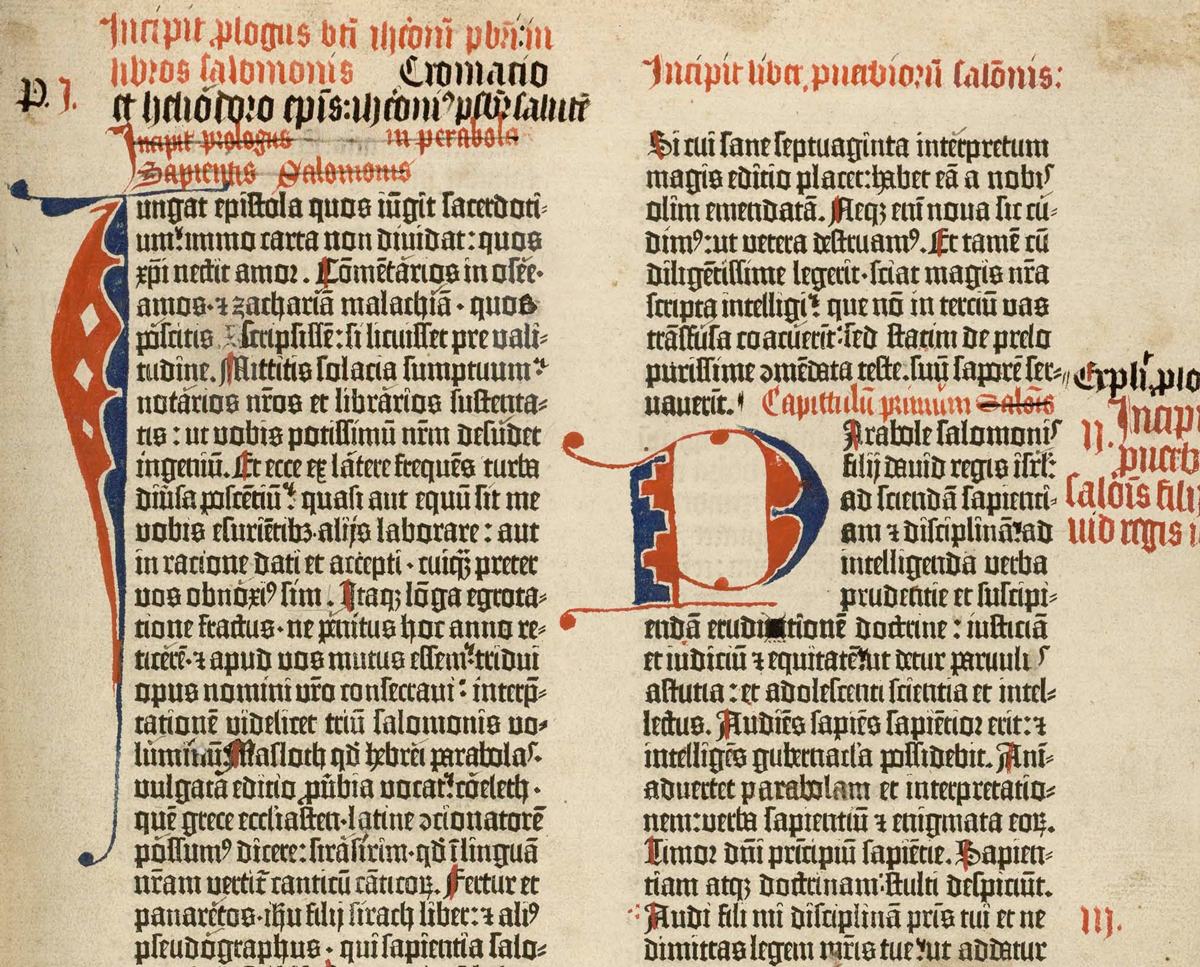 Incipit plogus bti ihe̅oni p̅bri: in
libros salomonis Cromacio
P. I. et heliodoro ep̅is: ihe̅oni⁹ p̅sb̅r salute̅
Incipit prologus in perabole
Sapientis Salomonis
Iungat epistola quos iu̅git sacerdoti-
um: immo carta non diuidat: quos
xp̅i nectit amor. Co̅me̅tarios in osee.
amos. ⁊ zacharia̅ malachia̅. quos
poscitis. Scripsisse̅: si licuisset pre vali-
tudine. Mittitis solacia sumptuum.
notarios nr̅os et librarios sustenta-
tis: ut vobis potissimu̅ nr̅m desudet
ingeniu̅. Et ecce ex latere freque̅s turba
diu̅sa posce̅tiu̅: quasi aut equu̅ sit me
vobis esurie̅tibꝫ. alijs laborare: aut
in racione dati et accepti. cuiqꝫ̅ preter
vos obnoxi⁹ sim. Itaqꝫ lo̅ga egrota-
tione fractus. ne penitus hoc anno re-
ticere̅. ⁊ apud vos mutus essem: tridui
opus nomini vr̅o consecraui: interp̅-
tatione̅ videlicet triu̅ salomonis vo-
luminu̅: Masloth qd̅ hebrei parabolas.
vulgata editio pu̅bia vocat: coeleth.
que̅ grece eccl̅iasten. latine ɔcionatore̅
possum⁹ dicere: sirasirim. qd̅ i̅ lingua̅
nr̅am vertit̅ canticu̅ ca̅ticoꝝ. Fertur et
panaretos. ih̅u filij sirach liber: ⁊ ali⁹
pseudographus. qui sapientia salo-
Incipit liber, puerbioru̅ salo̅nis:
Si cui sane septuaginta interpretum
magis editio placet: habet ea̅ a nobis
olim emendata̅. Neqꝫ eni̅ noua sic cu-
dim⁹: ut vetera destruam⁹. Et tame̅ cu̅
dilige̅tissime legerit. sciat magis nr̅a
scripta intelligi: que no̅ in terciu̅ vas
tra̅sfusa coacuerit: sed statim de prelo
purissime ɔme̅data teste. suu̅ sapore̅ ser- Expli. plo
uauerit. Capittulu̅ primum Salo̅is
Parabole salomonis
filij dauid regis isr̅l:
ad sciendam̅ sapienti-
am ⁊ disciplina̅: ad
intelligenda verba
prudentie et suscipi-
enda̅ eruditione̅ doctrine: iusticia̅
et iudiciu̅ ⁊ equitate̅: ut detur paruulis
astutia: et adolescenti scientia et intel-
lectus. Audie̅s sapie̅s sapie̅tior erit: ⁊
intellige̅s gubernacl̅a possidebit. Ani̅-
aduertet parabolam et interpretatio-
nem: verba sapientiu̅ ⁊ enigmata eoꝝ.
Timor dn̅i principiu̅ sapie̅tie. Sapien-
tiam atqꝫ doctrinam: stulti despiciu̅t.
Audi fili mi disciplina̅ pr̅is tui et ne
dimittas legem mr̅is tue: ut addatur
II. Incip
puerb
salo̅is fili
uid regis i
III.